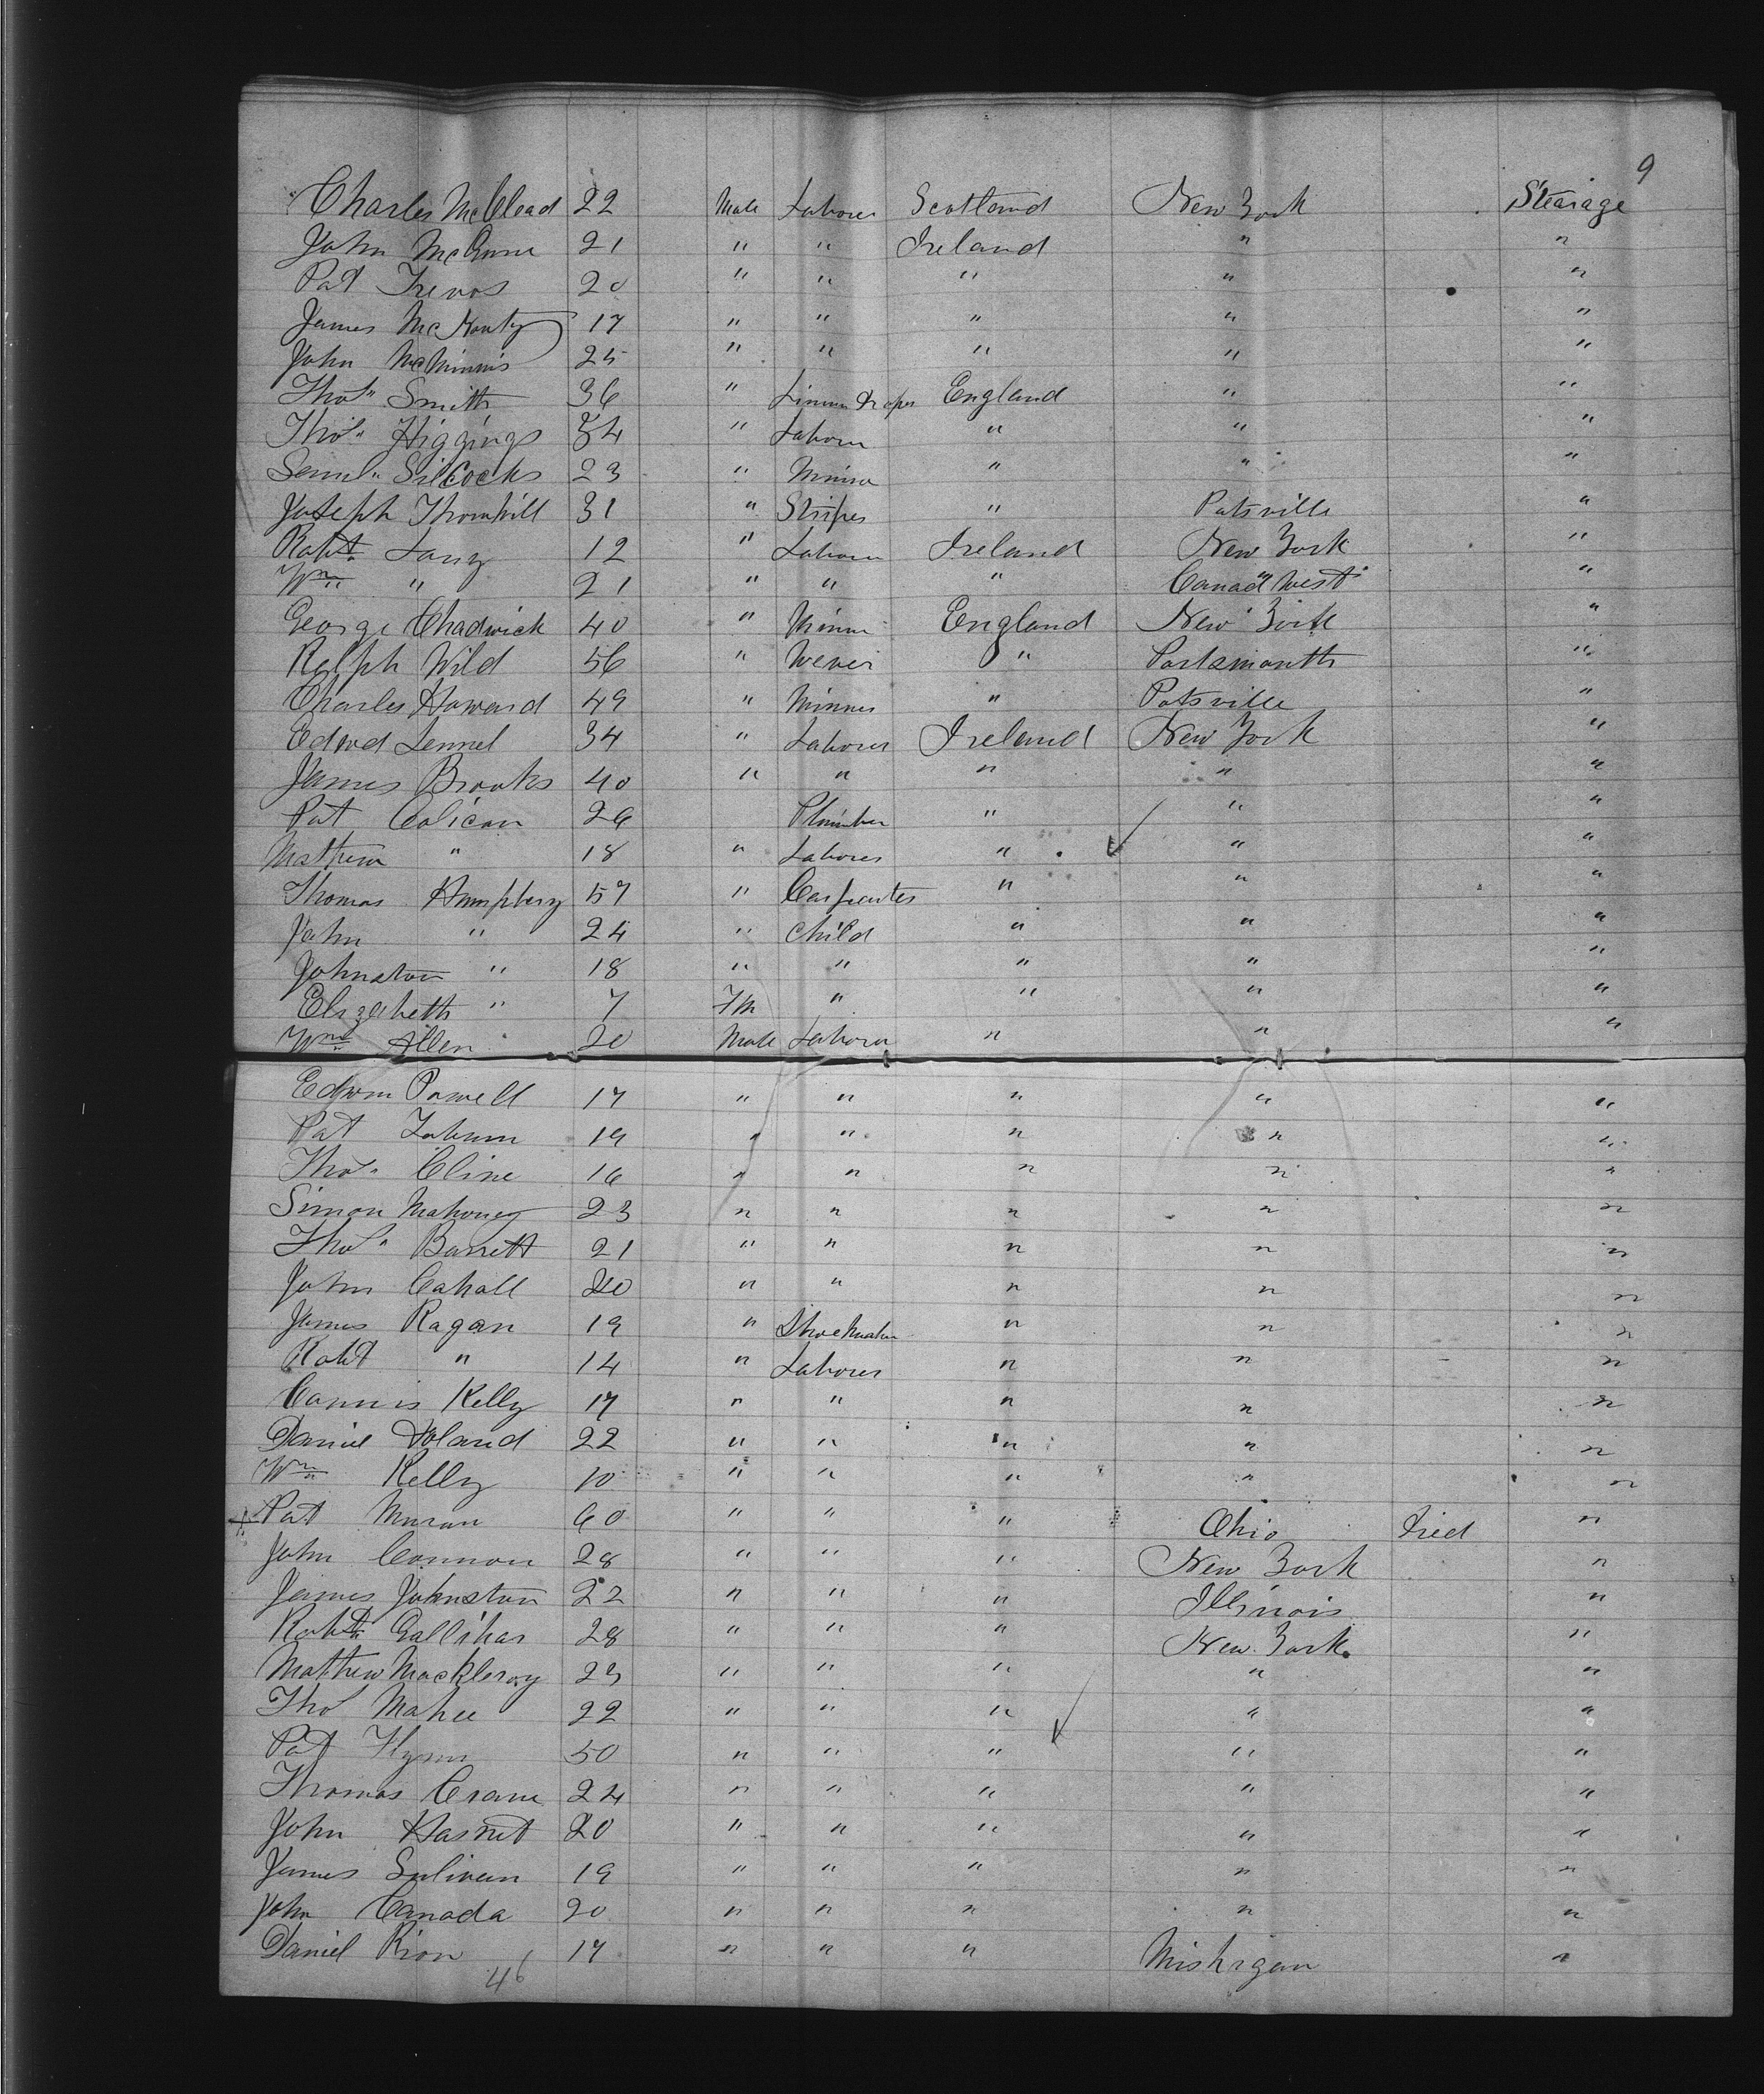 9
Charles McClead 22 Male Laborer Scotland New York Stearage
John 21 " " Ireland " "
Pat Trevor 20 " " " " "
James McNonty 17 " " " " "
John McMinnis 25 " " " " "
Thos" Smith 36 " Linnen Draper England " "
Thos" Higgings 34 " Laborer " " "
Saml" Silcocks 23 " Minner " " "
Joseph Thornhill 31 " " Potsville "
Robt" Lang 12 " Laborer Ireland New York "
Wm" " 21 " " " Canada West "
George Chadwick 40 " Minner England New York "
Ralph Wild 56 " Wever " Portsmouth "
Charles Howard 49 " Minner " Potsville "
Edwd Lennel 34 " Laborer Ireland New York "
James Brooks 40 " " " " "
Pat Colican 26 Plumber " " "
Mathew " 18 " Laborer " " "
Thomas Humphery 57 " Carpenter " " "
John " 24 " Child " " "
Johnston " 18 " " " " "
Elizabeth " 7 Fm " " " "
Wm" Allen 20 Male Laborer " " "
Edwin Powell 17 " " " " "
Pat 19 " " " " "
Thos" Cline 16 " " " " "
Simon Mahoney 23 " " " " "
Thos" Barrett 21 " " " " "
John Cahall 20 " " " " "
James Ragan 19 " Shoe Maker " " "
Robt " 14 " Laborer " " "
Cannis Kelly 17 " " " " "
Daniel Holand 22 " " " " "
Wm" Kelly 10 " " " " "
+ Pat Muran 60 " " " Ohio Died "
John Connon 28 " " " New York "
James Johnston 22 " " " Illinois "
Robt" Gallihar 28 " " " New York "
Mathew Mackleroy 23 " " " " "
Thos Mahee 22 " " " " "
Pat Flynn 50 " " " " "
Thomas Crane 24 " " " " "
John Hasnet 20 " " " " "
James Sulivan 19 " " " " "
John Canada 20 " " " " "
Daniel Rion 17 " " " Mishigan "
46